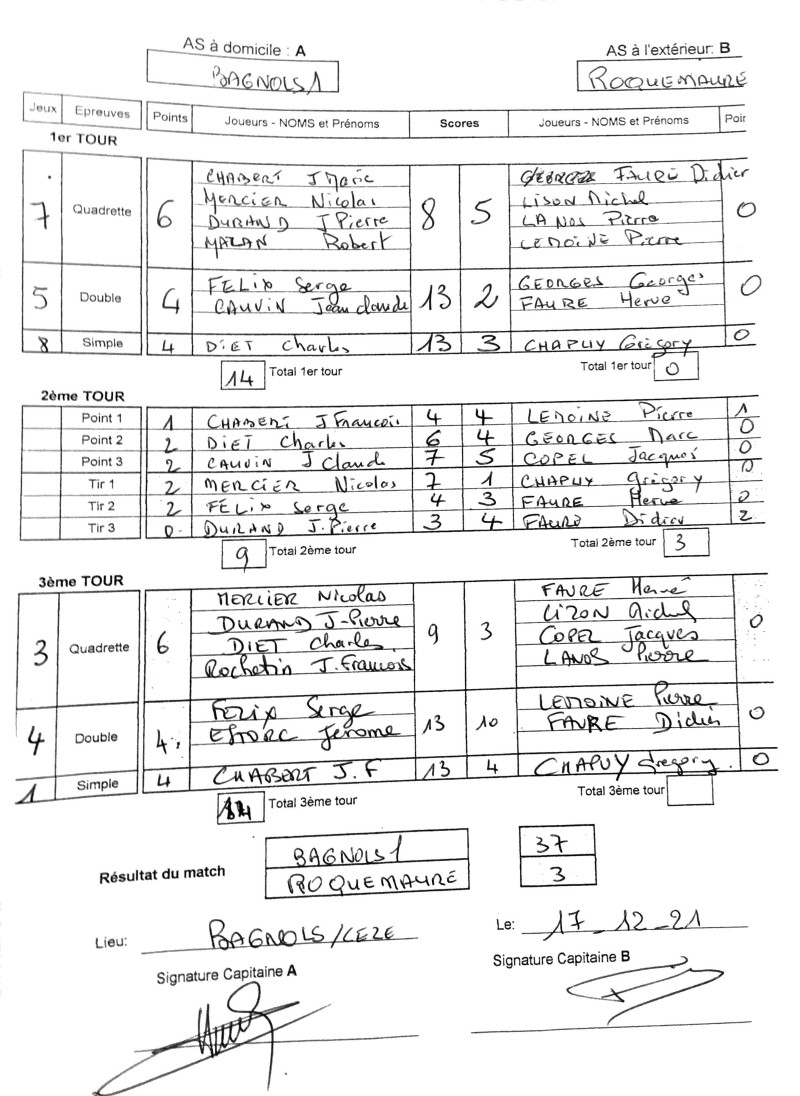 AS à domicile : A AS à l'extérieur: B
BAGNOLS 1 ROQUEMAURE
Jeux Epreuves Points Joueurs - NOMS et Prénoms Scores Joueurs - NOMS et Prénoms Poir
1er TOUR
7 Quadrette 6 8 5 0
CHABERT J Marie FAURE Didier
MERCIER Nicolas LISON Michel
DURAND J Pierre LANOS Pierre
MAZAN Robert LEMOINE Pierre
5 Double 4 13 2 0
FELIX Serge GEORGES Georges
CAUVIN Jean claude FAURE Hervé
8 Simple 4 DIET Charles 13 3 CHAPUY Grégory 0
14 Total 1er tour Total 1er tour 0
2ème TOUR
Point 1 1 CHABERT J Francois 4 4 LEMOINE Pierre 1
Point 2 2 DIET Charles 6 4 GEORGES Marc 0
Point 3 2 CAUVIN J Claude 7 5 COPEL Jacques 0
Tir 1 2 MERCIER Nicolas 7 1 CHAPUY Grégory 0
Tir 2 2 FELIX Serge 4 3 FAURE Herve 0
Tir 3 0 DURAND J. Pierre 3 4 FAURE Didier 2
9 Total 2ème tour Total 2ème tour 3
3ème TOUR
3 Quadrette 6 9 3 0
MERCIER Nicolas FAURE Hervé
DURAND J-Pierre LIZON Michel
DIET Charles COPEL Jacques
Rochetin J. Francois LANOS Pierre
4 Double 4 13 10 0
FELIX Serge LEMOINE Pierre
ESTORC Jerome FAURE Didier
1 Simple 4 CHABERT J. F 13 4 CHAPUY Gregory. 0
14 Total 3ème tour Total 3ème tour
Résultat du match
BAGNOLS 1 37
ROQUEMAURE 3
Lieu: BAGNOLS/CEZE Le: 17_12_21
Signature Capitaine A Signature Capitaine B